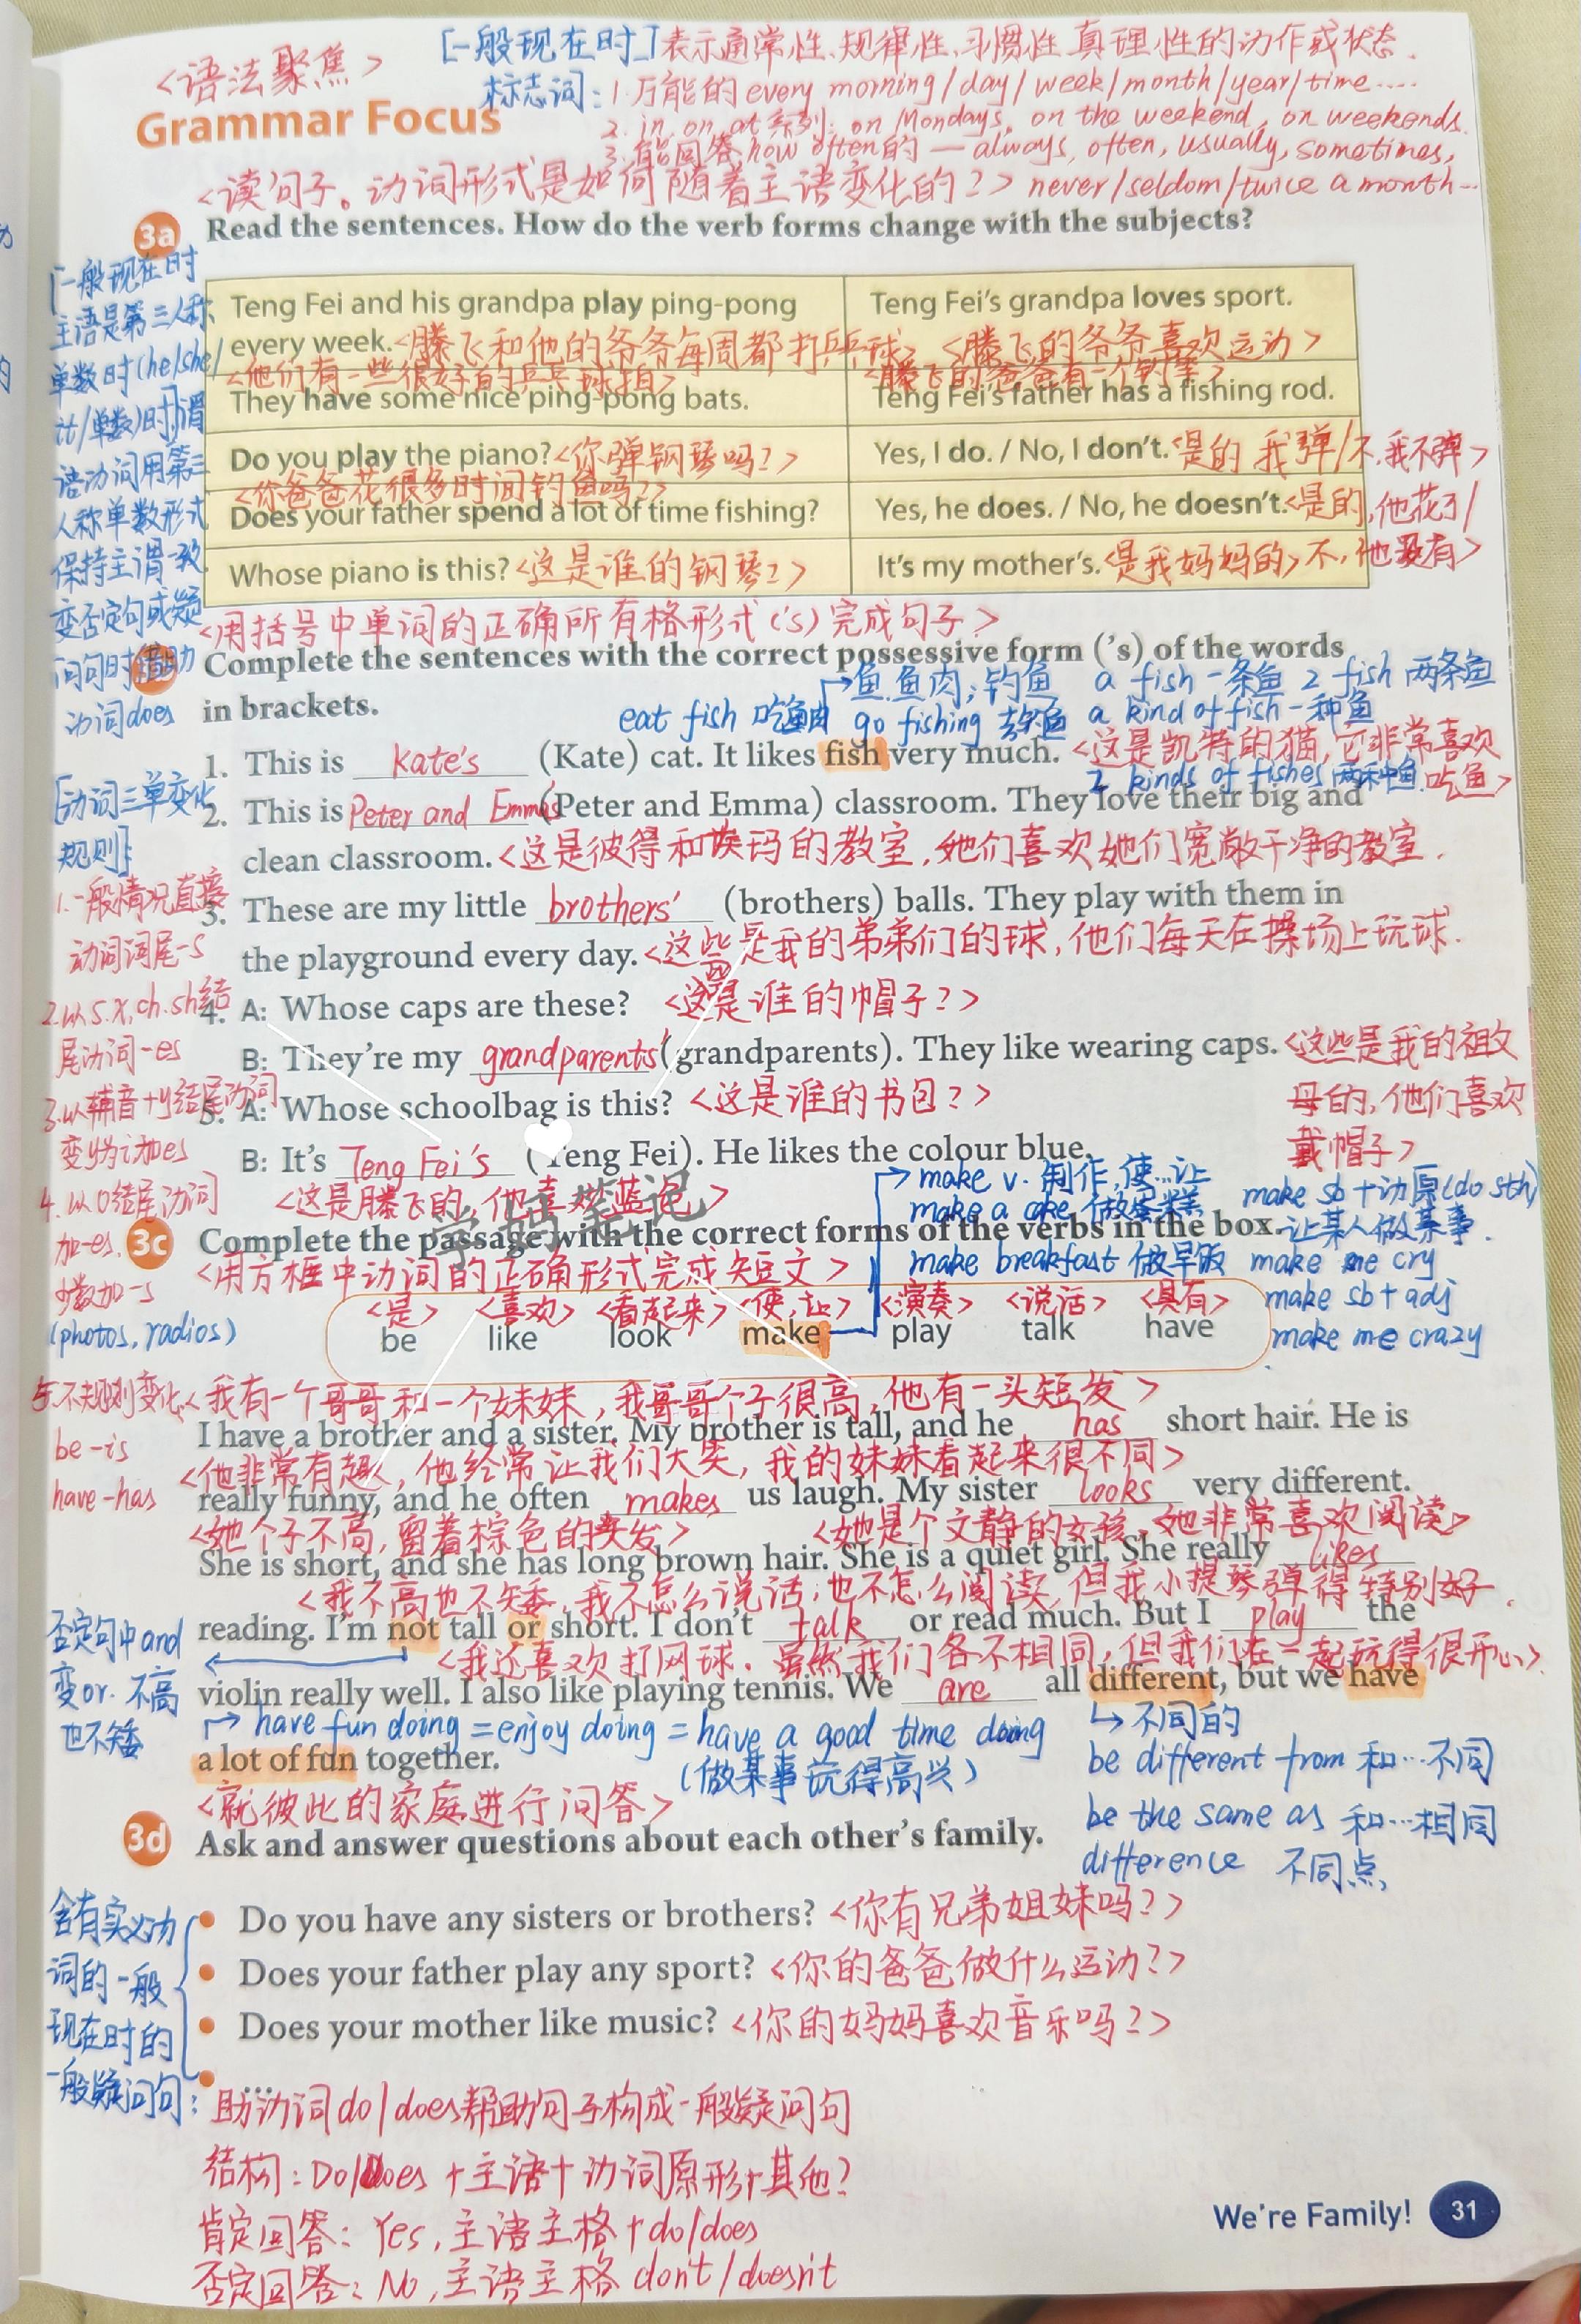 <语法聚焦>
[一般现在时]表示通常性、规律性、习惯性、真理性的动作或状态.
标志词: 1.万能的 every morning/day/week/month/year/time....
Grammar Focus
2. in, on, at 系列: on Mondays, on the weekend, on weekends.
3. 能回答 how often的 — always, often, usually, sometimes,
<读句子。动词形式是如何随着主语变化的?> never/seldom/twice a month...
3a Read the sentences. How do the verb forms change with the subjects?
[一般现在时
主语是第三人称
单数时(he/she/
it/单数)时,谓
语动词用第三
人称单数形式
保持主谓一致
变否定句或疑
问句时借助
动词does
Teng Fei and his grandpa play ping-pong
every week.<腾飞和他的爷爷每周都打乒乓球>
Teng Fei's grandpa loves sport.
<腾飞的爷爷喜欢运动>
<他们有一些很好的乒乓球拍>
They have some nice ping-pong bats.
<腾飞的爸爸有一个钓竿>
Teng Fei's father has a fishing rod.
Do you play the piano?<你弹钢琴吗?>
Yes, I do. / No, I don't.<是的 我弹/不,我不弹>
<你爸爸花很多时间钓鱼吗?>
Does your father spend a lot of time fishing?
Yes, he does. / No, he doesn't.<是的,他花了/
不,他没有>
Whose piano is this?<这是谁的钢琴?>
It's my mother's.<是我妈妈的>
<用括号中单词的正确所有格形式('s)完成句子>
Complete the sentences with the correct possessive form ('s) of the words
in brackets.
鱼,鱼肉;钓鱼 a fish 一条鱼 2 fish 两条鱼
eat fish 吃鱼肉 go fishing 去钓鱼 a kind of fish 一种鱼
1. This is Kate's (Kate) cat. It likes fish very much. <这是凯特的猫,它非常喜欢
吃鱼>
2 kinds of fishes 两种鱼
2. This is Peter and Emma's (Peter and Emma) classroom. They love their big and
clean classroom.<这是彼得和埃玛的教室,她们喜欢她们宽敞干净的教室.
3. These are my little brothers' (brothers) balls. They play with them in
the playground every day.<这些是我的弟弟们的球,他们每天在操场上玩球.
4. A: Whose caps are these? <这是谁的帽子?>
B: They're my grandparents' (grandparents). They like wearing caps.<这些是我的祖父
母的,他们喜欢
戴帽子>
5. A: Whose schoolbag is this? <这是谁的书包?>
B: It's Teng Fei's (Teng Fei). He likes the colour blue.
<这是腾飞的,他喜欢蓝色>
[动词三单变化
规则]:
1.一般情况直接
动词词尾-s
2.以s.x,ch.sh结
尾动词-es
3.以辅音+y结尾动词
变y为i加es
4.以O结尾动词
加-es,
少数加-s
(photos, radios)
5.不规则变化
be-is
have-has
学妈笔记
make v. 制作,使,让
make a cake 做蛋糕
make breakfast 做早饭
make sb+动原(do sth)
让某人做某事.
make me cry
make sb+adj
make me crazy
3c Complete the passage with the correct forms of the verbs in the box.
<用方框中动词的正确形式完成短文>
<是> <喜欢> <看起来> <使,让> <演奏> <说话> <具有>
be like look make play talk have
<我有一个哥哥和一个妹妹,我哥哥个子很高,他有一头短发>
I have a brother and a sister. My brother is tall, and he has short hair. He is
<他非常有趣,他经常让我们大笑,我的妹妹看起来很不同>
really funny, and he often makes us laugh. My sister looks very different.
<她个子不高,留着棕色的头发> <她是个文静的女孩,她非常喜欢阅读>
She is short, and she has long brown hair. She is a quiet girl. She really likes
<我不高也不矮,我不怎么说话,也不怎么阅读,但我小提琴弹得特别好.
reading. I'm not tall or short. I don't talk or read much. But I play the
<我还喜欢打网球.虽然我们各不相同,但我们在一起玩得很开心>
violin really well. I also like playing tennis. We are all different, but we have
have fun doing = enjoy doing = have a good time doing
a lot of fun together.
(做某事玩得高兴)
否定句中and
变or. 不高
也不矮
不同的
be different from 和...不同
be the same as 和...相同
difference 不同点,
<就彼此的家庭进行问答>
3d Ask and answer questions about each other's family.
含有实义动
词的一般
现在时的
一般疑问句:
• Do you have any sisters or brothers? <你有兄弟姐妹吗?>
• Does your father play any sport? <你的爸爸做什么运动?>
• Does your mother like music? <你的妈妈喜欢音乐吗?>
• ...
助动词do/does帮助句子构成一般疑问句
结构: Do/Does +主语+动词原形+其他?
肯定回答: Yes, 主语主格+do/does
否定回答: No, 主语主格 don't/doesn't
We're Family! 31